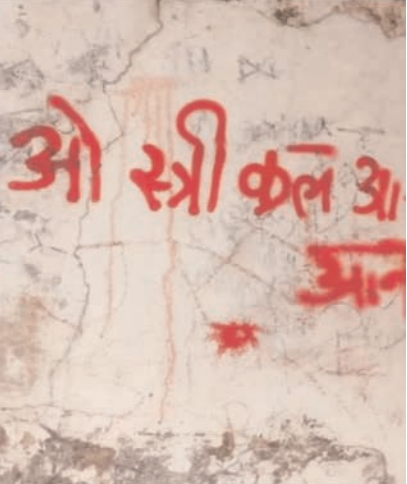 ओ स्त्री कल आ
आन